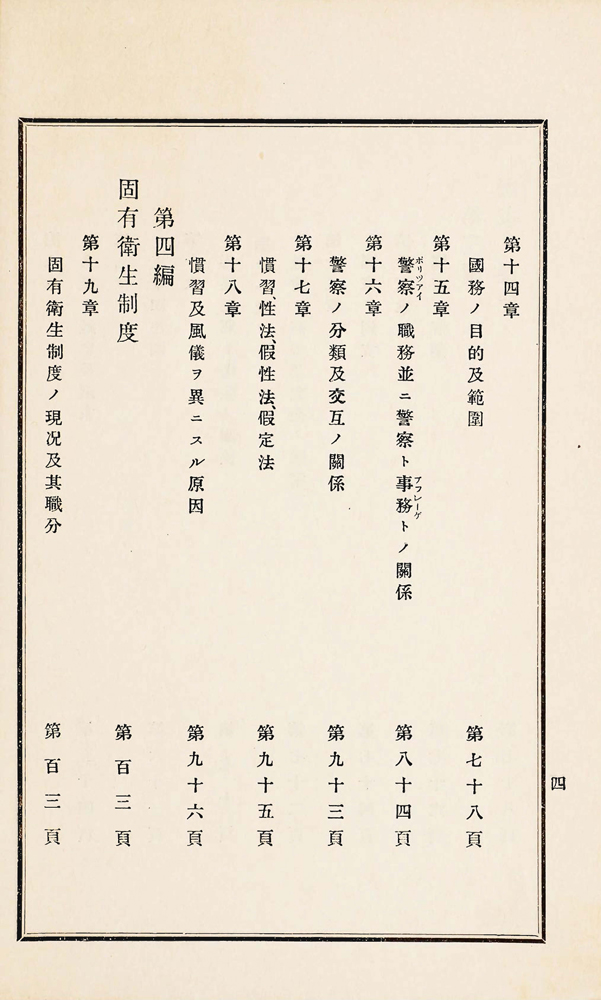 第十四章
國務ノ目的及範圍 第七十八頁
第十五章
警察ノ職務並ニ警察ト事務トノ關係 第八十四頁
ポリツアイ
プフレーゲ
第十六章
警察ノ分類及交互ノ關係 第九十三頁
第十七章
慣習、性法、假性法、假定法 第九十五頁
第十八章
慣習及風儀ヲ異ニスル原因 第九十六頁
第四編
固有衛生制度 第百三頁
第十九章
固有衛生制度ノ現况及其職分 第百三頁
四